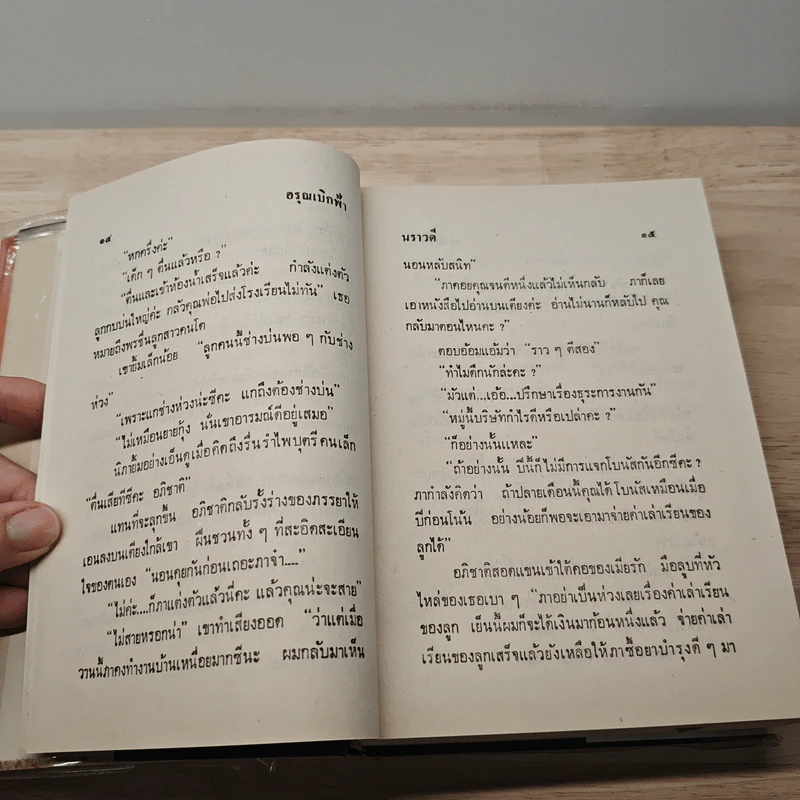 อรุณเบิกฟ้า
๑๔
"หกครึ่งค่ะ"
"เด็ก ๆ ตื่นแล้วหรือ ?"
"ตื่นและเข้าห้องน้ำเสร็จแล้วค่ะ กำลังแต่งตัว
ลูกกบบ่นใหญ่ค่ะ กลัวคุณพ่อไปส่งโรงเรียนไม่ทัน" เธอ
หมายถึงพรชื่นลูกสาวคนโต
เขายิ้มเล็กน้อย "ลูกคนนี้ช่างบ่นพอ ๆ กับช่าง
ห่วง"
"เพราะแกช่างห่วงน่ะซีคะ แกถึงต้องช่างบ่น"
"ไม่เหมือนยายกุ้ง นั่นเขาอารมณ์ดีอยู่เสมอ"
นิภายิ้มอย่างเอ็นดูเมื่อคิดถึงรื่นรำไพบุตรีคนเล็ก
"ตื่นเสียทีซีคะ อภิชาติ"
แทนที่จะลุกขึ้น อภิชาติกลับรั้งร่างของภรรยาให้
เอนลงบนเตียงใกล้เขา ผืนชวนทั้ง ๆ ที่สะอิดสะเอียน
ใจของตนเอง "นอนคุยกันก่อนเถอะภาจ๋า...."
"ไม่ค่ะ....ก็ภาแต่งตัวแล้วนี่คะ แล้วคุณน่ะจะสาย"
"ไม่สายหรอกน่า" เขาทำเสียงออด "ว่าแต่เมื่อ
วานนี้ภาคงทำงานบ้านเหนื่อยมากซีนะ ผมกลับมาเห็น
นราวดี
๑๕
นอนหลับสนิท"
"ภาคอยคุณจนตีหนึ่งแล้วไม่เห็นกลับ ภาก็เลย
เอาหนังสือไปอ่านบนเตียงค่ะ อ่านไม่นานก็หลับไป คุณ
กลับมาตอนไหนคะ ?"
ตอบอ้อมแอ้มว่า "ราว ๆ ตีสอง"
"ทำไมดึกนักล่ะคะ ?"
"มัวแต่...เอ้อ...ปรึกษาเรื่องธุระการงานกัน"
"หมู่นี้บริษัทกำไรดีหรือเปล่าคะ ?"
"ก็อย่างนั้นแหละ"
"ถ้าอย่างนั้น ปีนี้ก็ไม่มีการแจกโบนัสกันอีกซีคะ ?
ภากำลังคิดว่า ถ้าปลายเดือนนี้คุณได้โบนัสเหมือนเมื่อ
ปีก่อนโน้น อย่างน้อยก็พอจะเอามาจ่ายค่าเล่าเรียนของ
ลูกได้"
อภิชาติสอดแขนเข้าใต้คอของเมียรัก มือลูบที่หัว
ไหล่ของเธอเบา ๆ "ภาอย่าเป็นห่วงเลยเรื่องค่าเล่าเรียน
ของลูก เย็นนี้ผมก็จะได้เงินมาก้อนหนึ่งแล้ว จ่ายค่าเล่า
เรียนของลูกเสร็จแล้วยังเหลือให้ภาซื้อยาบำรุงดี ๆ มา